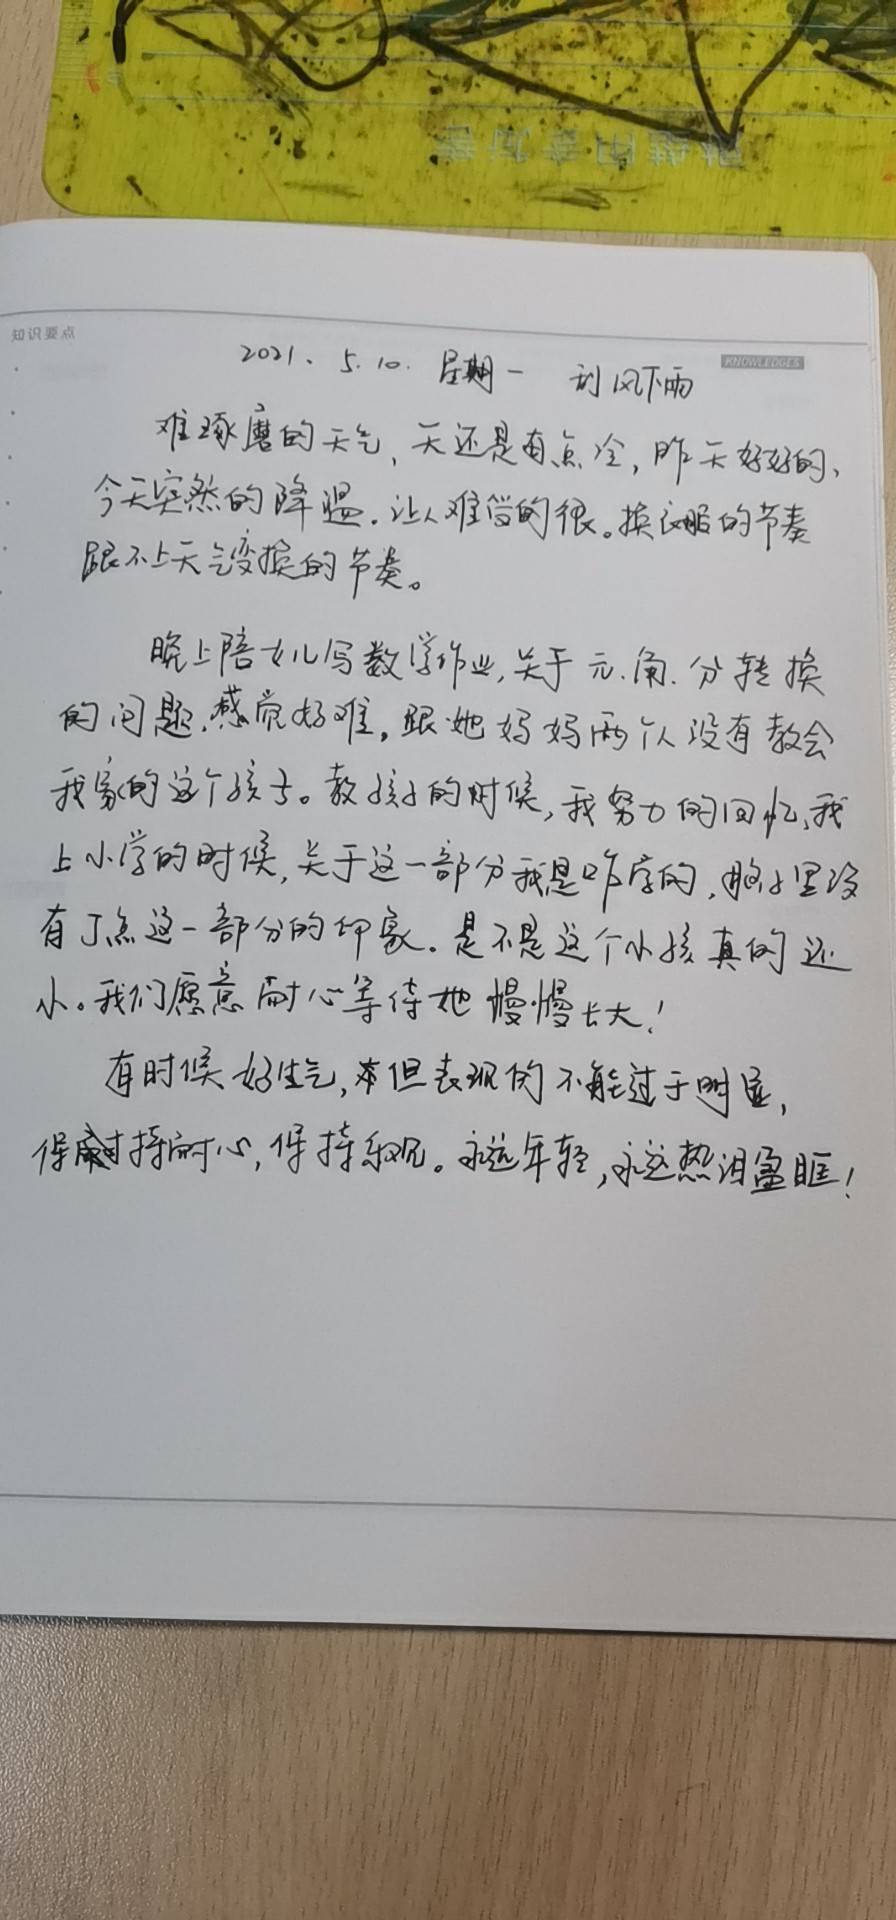 知识要点
KNOWLEDGES
2021、5.10. 星期一 刮风下雨
难琢磨的天气,天还是有点冷,昨天好好的、
今天突然的降温.让人难受的很。换衣服的节奏
跟不上天气变换的节奏。
晚上陪女儿写数学作业,关于元.角.分转换
的问题,感觉好难,跟她妈妈两个人没有教会
我家的这个孩子。教孩子的时候,我努力的回忆,我
上小学的时候,关于这一部分我是咋学的,脑子里没
有丁点这一部分的印象.是不是这个小孩真的还
小。我们愿意耐心等待她慢慢长大!
有时候好生气,但表现的不能过于明显,
保持耐心,保持乐观。永远年轻,永远热泪盈眶!